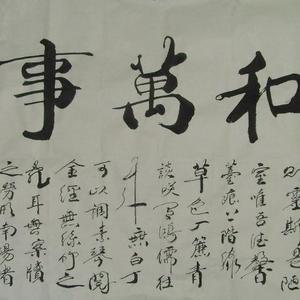 和萬事
則靈斯是陋
室唯吾德馨
苔痕上階綠
草色入簾青
談笑有鴻儒往
來無白丁
可以調素琴閱
金經無絲竹之
亂耳無案牘
之勞形南陽諸